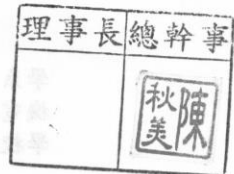 理事長 總幹事
陳秋美